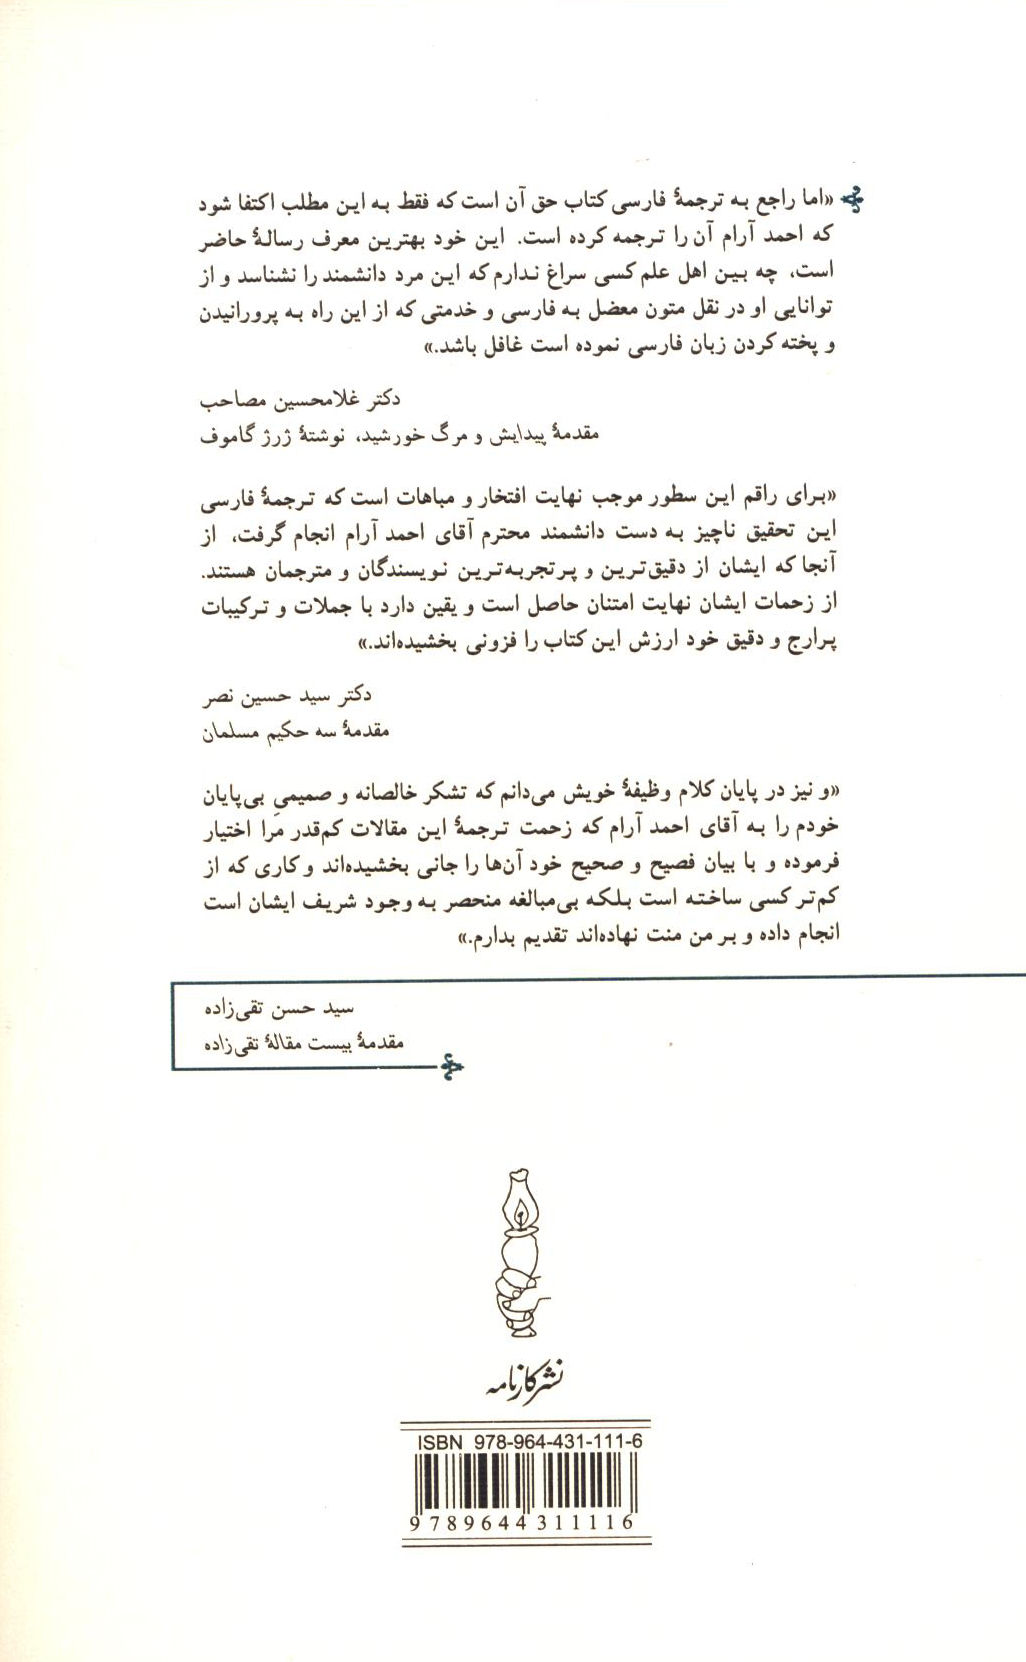 «اما راجع به ترجمهٔ فارسی کتاب حق آن است که فقط به این مطلب اکتفا شود
که احمد آرام آن را ترجمه کرده است. این خود بهترین معرف رسالهٔ حاضر
است، چه بین اهل علم کسی سراغ ندارم که این مرد دانشمند را نشناسد و از
توانایی او در نقل متون معضل به فارسی و خدمتی که از این راه به پرورانیدن
و پخته کردن زبان فارسی نموده است غافل باشد.»
دکتر غلامحسین مصاحب
مقدمهٔ پیدایش و مرگ خورشید، نوشتهٔ ژرژ گاموف
«برای راقم این سطور موجب نهایت افتخار و مباهات است که ترجمهٔ فارسی
این تحقیق ناچیز به دست دانشمند محترم آقای احمد آرام انجام گرفت، از
آنجا که ایشان از دقیق‌ترین و پرتجربه‌ترین نویسندگان و مترجمان هستند.
از زحمات ایشان نهایت امتنان حاصل است و یقین دارد با جملات و ترکیبات
پرارج و دقیق خود ارزش این کتاب را فزونی بخشیده‌اند.»
دکتر سید حسین نصر
مقدمهٔ سه حکیم مسلمان
«و نیز در پایان کلام وظیفهٔ خویش می‌دانم که تشکر خالصانه و صمیمیِ بی‌پایان
خودم را به آقای احمد آرام که زحمت ترجمهٔ این مقالات کم‌قدر مَرا اختیار
فرموده و با بیان فصیح و صحیح خود آن‌ها را جانی بخشیده‌اند و کاری که از
کم‌تر کسی ساخته است بلکه بی‌مبالغه منحصر به وجود شریف ایشان است
انجام داده و بر من منت نهاده‌اند تقدیم بدارم.»
سید حسن تقی‌زاده
مقدمهٔ بیست مقالهٔ تقی‌زاده
نشر کارنامه
ISBN 978-964-431-111-6
9 789644 311116